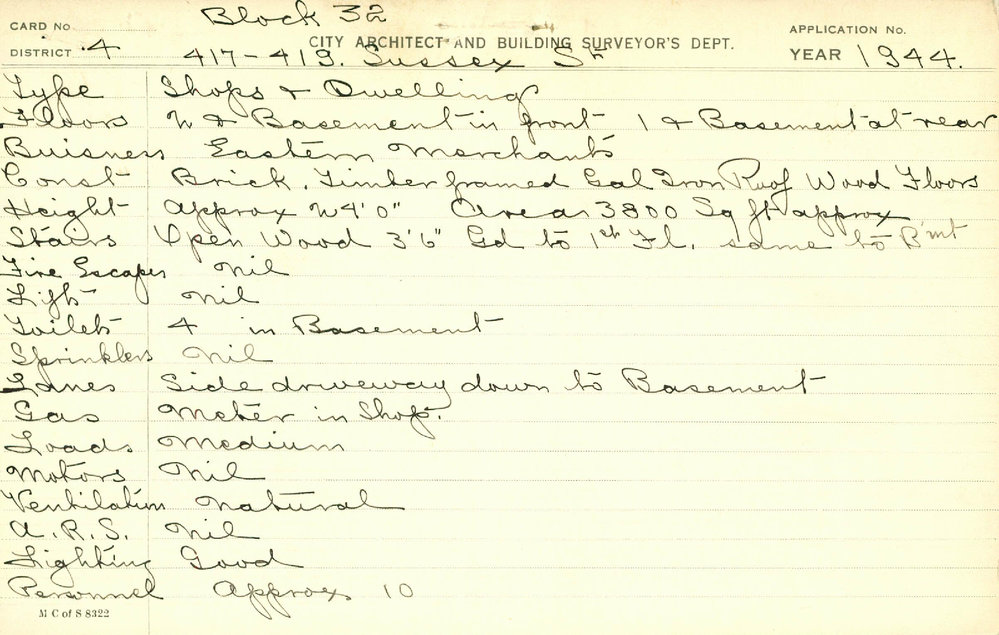 Block 32
CARD No. CITY ARCHITECT AND BUILDING SURVEYOR'S DEPT. APPLICATION No.
DISTRICT 4 417-419. Sussex St YEAR 1944.
Type Shops & Dwelling
Floors 2 & Basement in front 1 & Basement at rear
Buisness Eastern Merchants
Const Brick. Timber framed Gal Iron Roof Wood Floors
Height Approx 24'0" Area 3800 Sq ft approx
Stairs Open Wood 3'6" Gd to 1st Fl. same to B'mt
Fire Escapes Nil
Lift Nil
Toilets 4 in Basement
Sprinklers Nil
Lanes Side driveway down to Basement
Gas Meter in Shop.
Loads Medium
Motors Nil
Ventilation Natural
A.R.S. Nil
Lighting Good
Personnel Approx 10
M C of S 8322